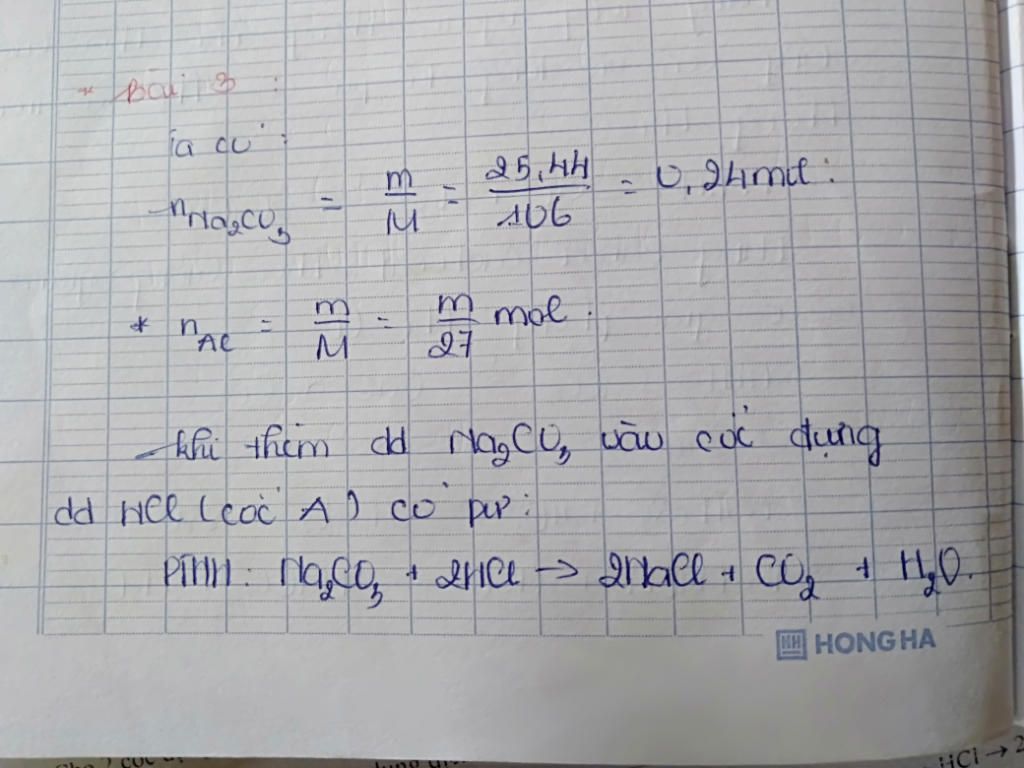 * Bài 3 :
Ta có :
n Na₂CO₃ = m/M = 25,44/106 = 0,24 mol :
* n Al = m/M = m/27 mol .
- khi thêm dd Na₂CO₃ vào cốc đựng
dd HCl (cốc A) có pư :
PTHH : Na₂CO₃ + 2HCl → 2NaCl + CO₂ + H₂O.
HH HONG HA
HCl → 2